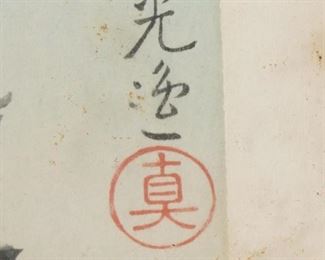 光逸
真